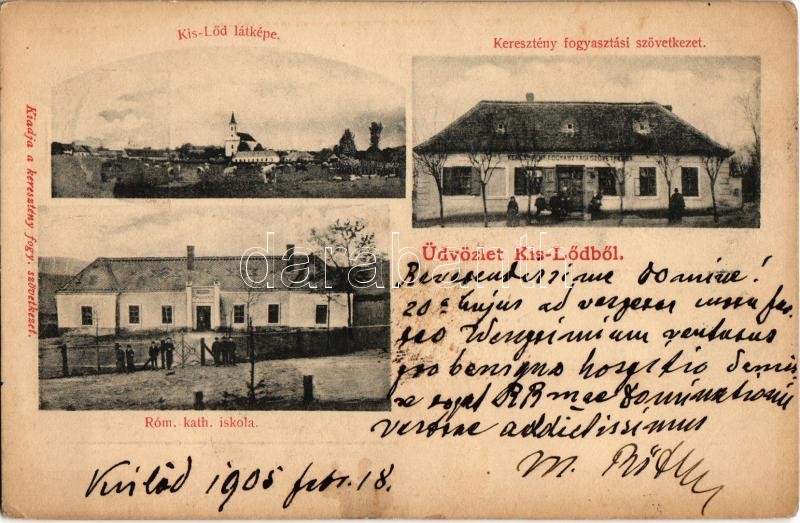 Kis-Lőd látképe.
Keresztény fogyasztási szövetkezet.
Kiadja a keresztény fogy. szövetkezet.
KERESZTÉNY FOGYASZTÁSI SZÖVETKEZET
darabanth
Üdvözlet Kis-Lődből.
Róm. kath. iskola.
Reverendissime Domine!
20 a hujus ad
venturus
pro benigno hospitio
rogat RRmae Dominationi
Verae addictissimus
M.
Kislőd 1905 febr. 18.